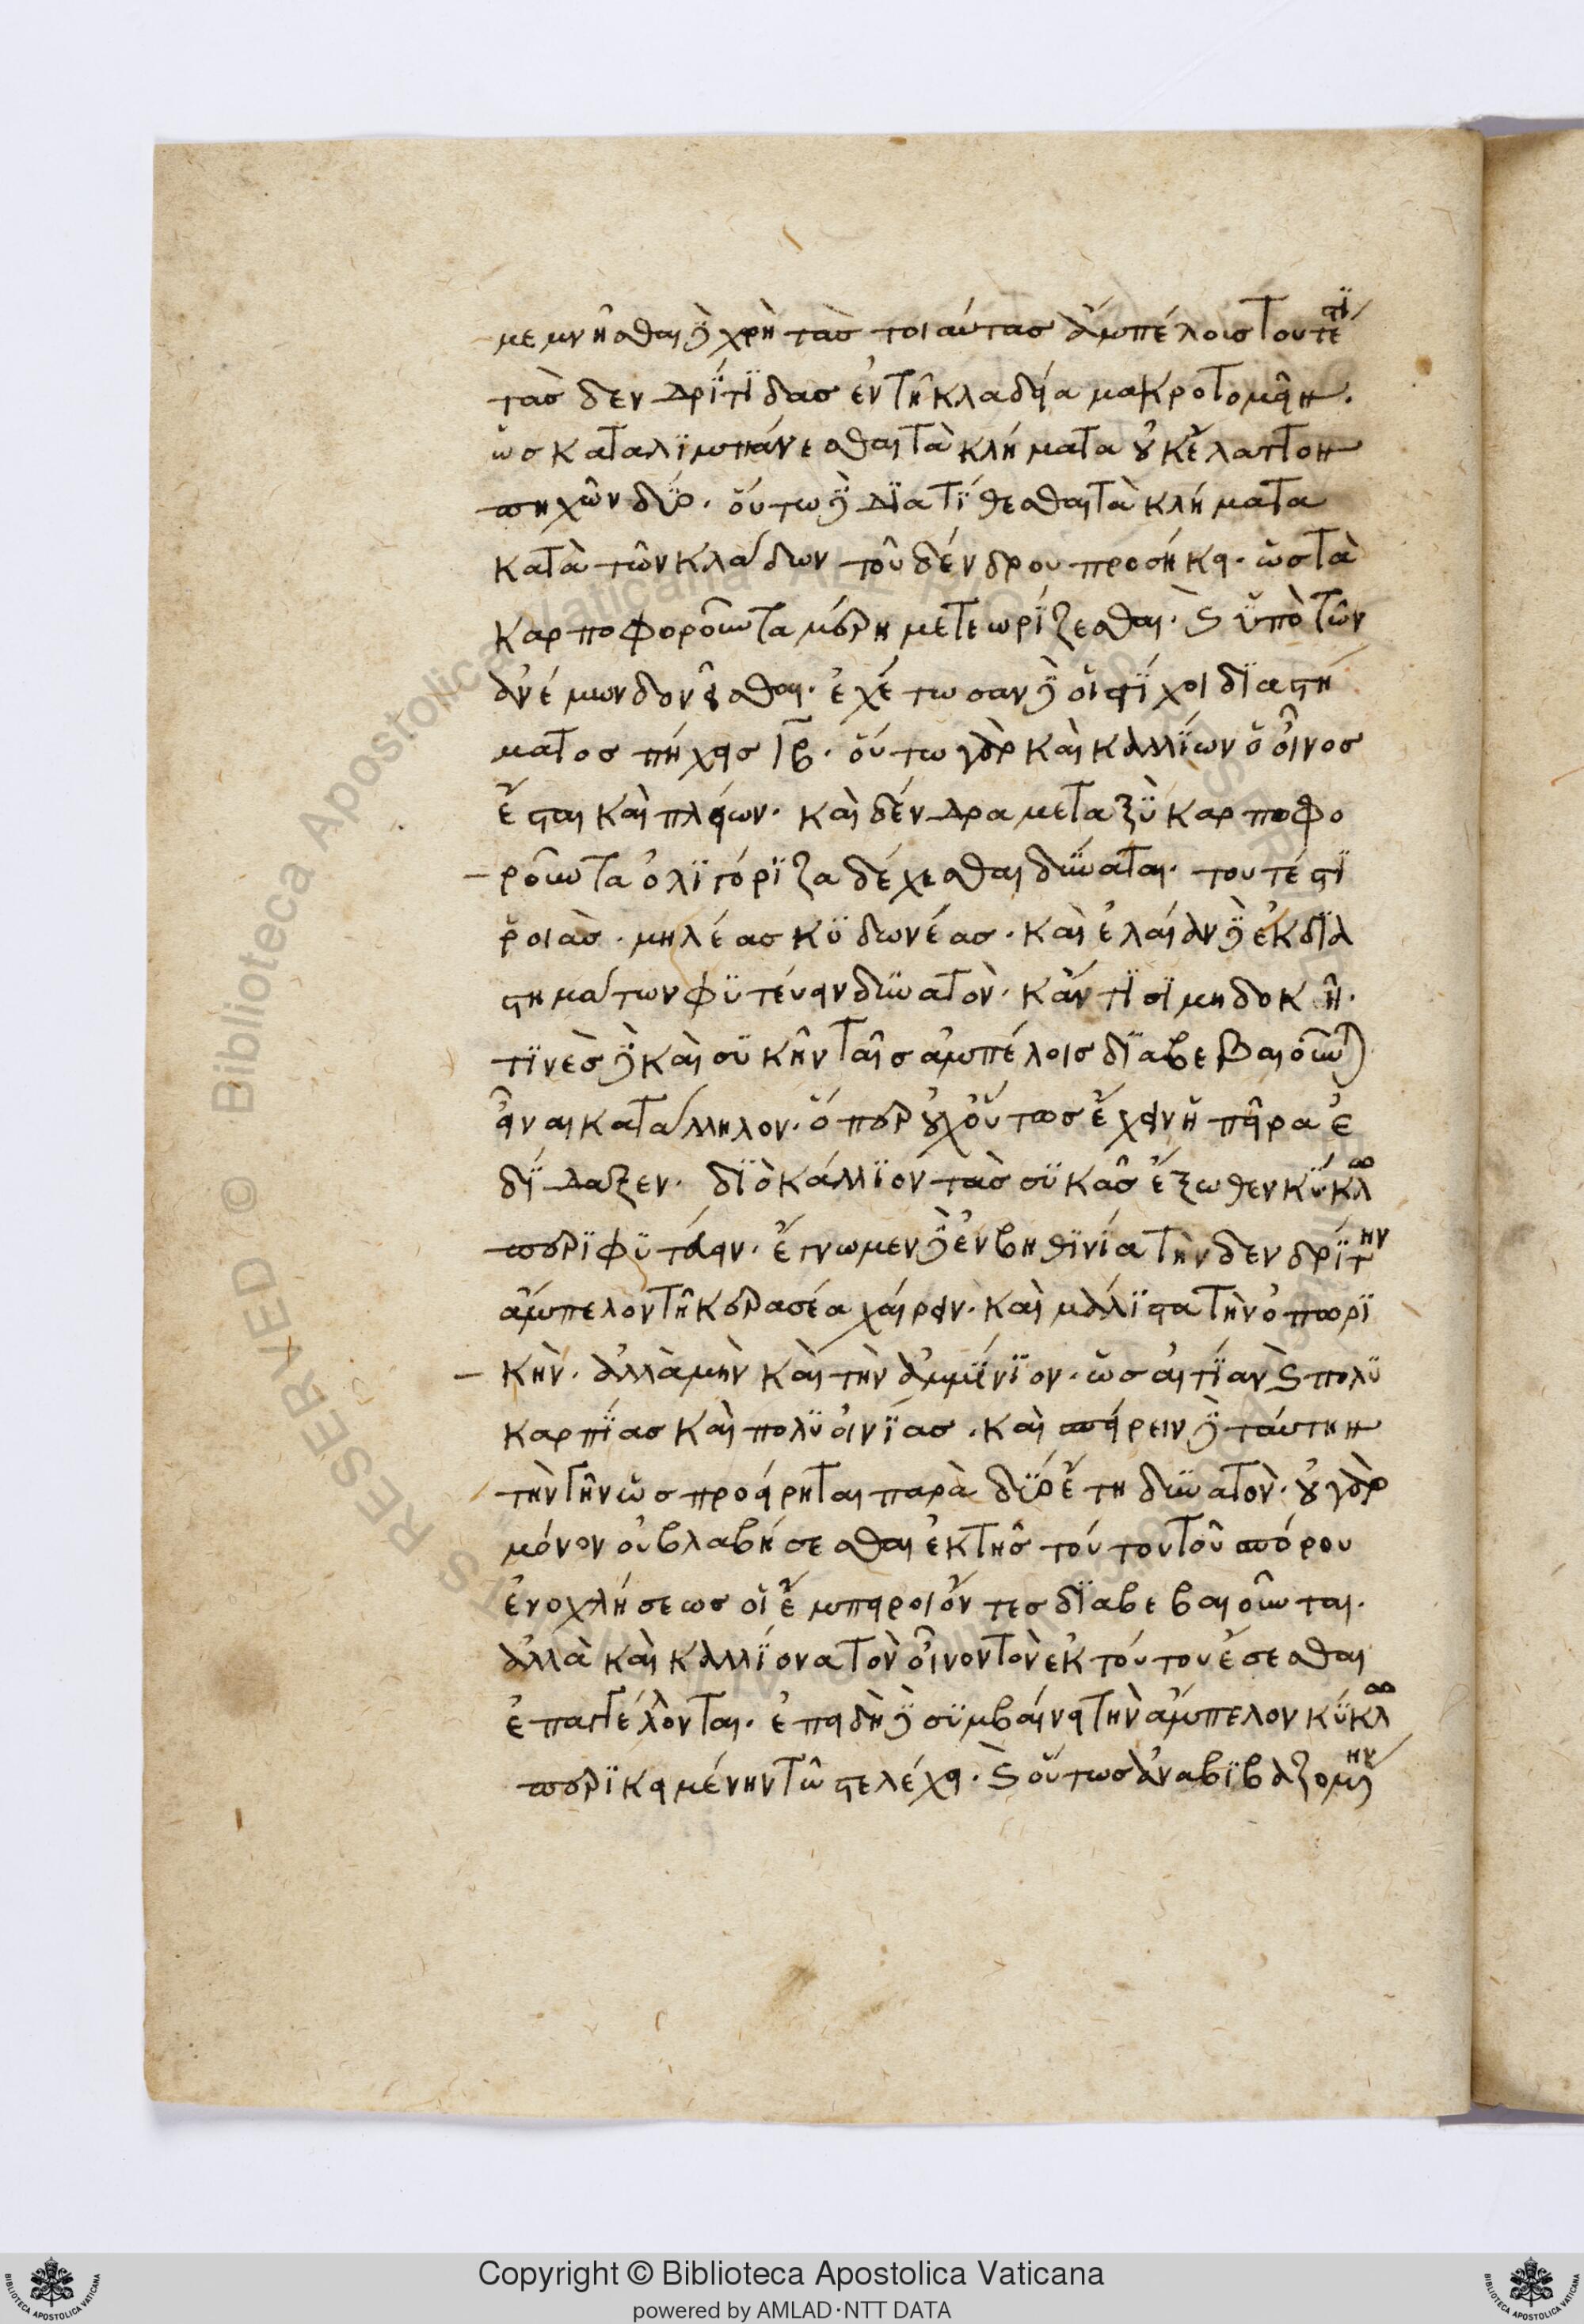 μεμνῆσθαι δὲ χρὴ τὰς τοιαύτας ἀμπέλοις τουτέστι
τὰς δενδρίτιδας ἐν τῆ κλαδεία μακροτομεῖν.
ὡς καταλιμπάνεσθαι τὰ κλήματα οὐκ ἔλαττον
πηχῶν δύο. οὕτω δὲ διατίθεσθαι τὰ κλήματα
κατὰ τῶν κλάδων τοῦ δένδρου προσήκει. ὡς τὰ
καρποφοροῦντα μέρη μετεωρίζεσθαι. καὶ ὑπὸ τῶν
ἀνέμων δονεῖσθαι. ἐχέτωσαν δὲ οἱ στίχοι διαστή
ματος πήχεις ιβ. οὕτω γὰρ καὶ καλλίων ὁ οἶνος
ἔσται καὶ πλείων. καὶ δένδρα μεταξὺ καρποφο
ροῦντα ὀλιγόριζα δέχεσθαι δύναται. τουτέστι
ῥοιὰς. μηλέας κυδωνέας. καὶ ἐλαίαν δὲ ἐκ δια
στημάτων φυτεύειν δυνατὸν. κἄν τισι μὴ δοκῆ.
τινὲς δὲ καὶ συκῆν ταῖς ἀμπέλοις διαβεβαιοῦνται
εἶναι κατάλληλον. ὅπερ οὐχ οὕτως ἔχειν ἡ πεῖρα ἐ
δίδαξεν. διὸ κάλλιον τὰς συκᾶς ἔξωθεν κύκλω
περιφυτεύειν. ἔγνωμεν δὲ ἐν βηθινία τὴν δενδρίτην
ἄμπελον τῆ κερασέα χαίρειν. καὶ μάλιστα τὴν ὀπωρι
κὴν. ἀλλὰ μὴν καὶ τὴν ἀμμίνιον. ὡς αἰτίαν καὶ πολυ
καρπίας καὶ πολυοινίας. καὶ σπείρειν δὲ ταύτην
τὴν γῆν ὡς προείρηται παρὰ δύο ἔτη δυνατὸν. οὐ γὰρ
μόνον οὐ βλαβήσεσθαι ἐκ τῆς τούτου τοῦ σπόρου
ἐνοχλήσεως οἱ ἔμπειροι ὄντες διαβεβαιοῦνται.
ἀλλὰ καὶ καλλίονα τὸν οἶνον τὸν ἐκ τούτου ἔσεσθαι
ἐπαγγέλονται. ἐπειδὴ δὲ συμβαίνει τὴν ἄμπελον κύκλω
περικειμένην τῶ στελέχει. καὶ οὕτως ἀναβιβαζομένην